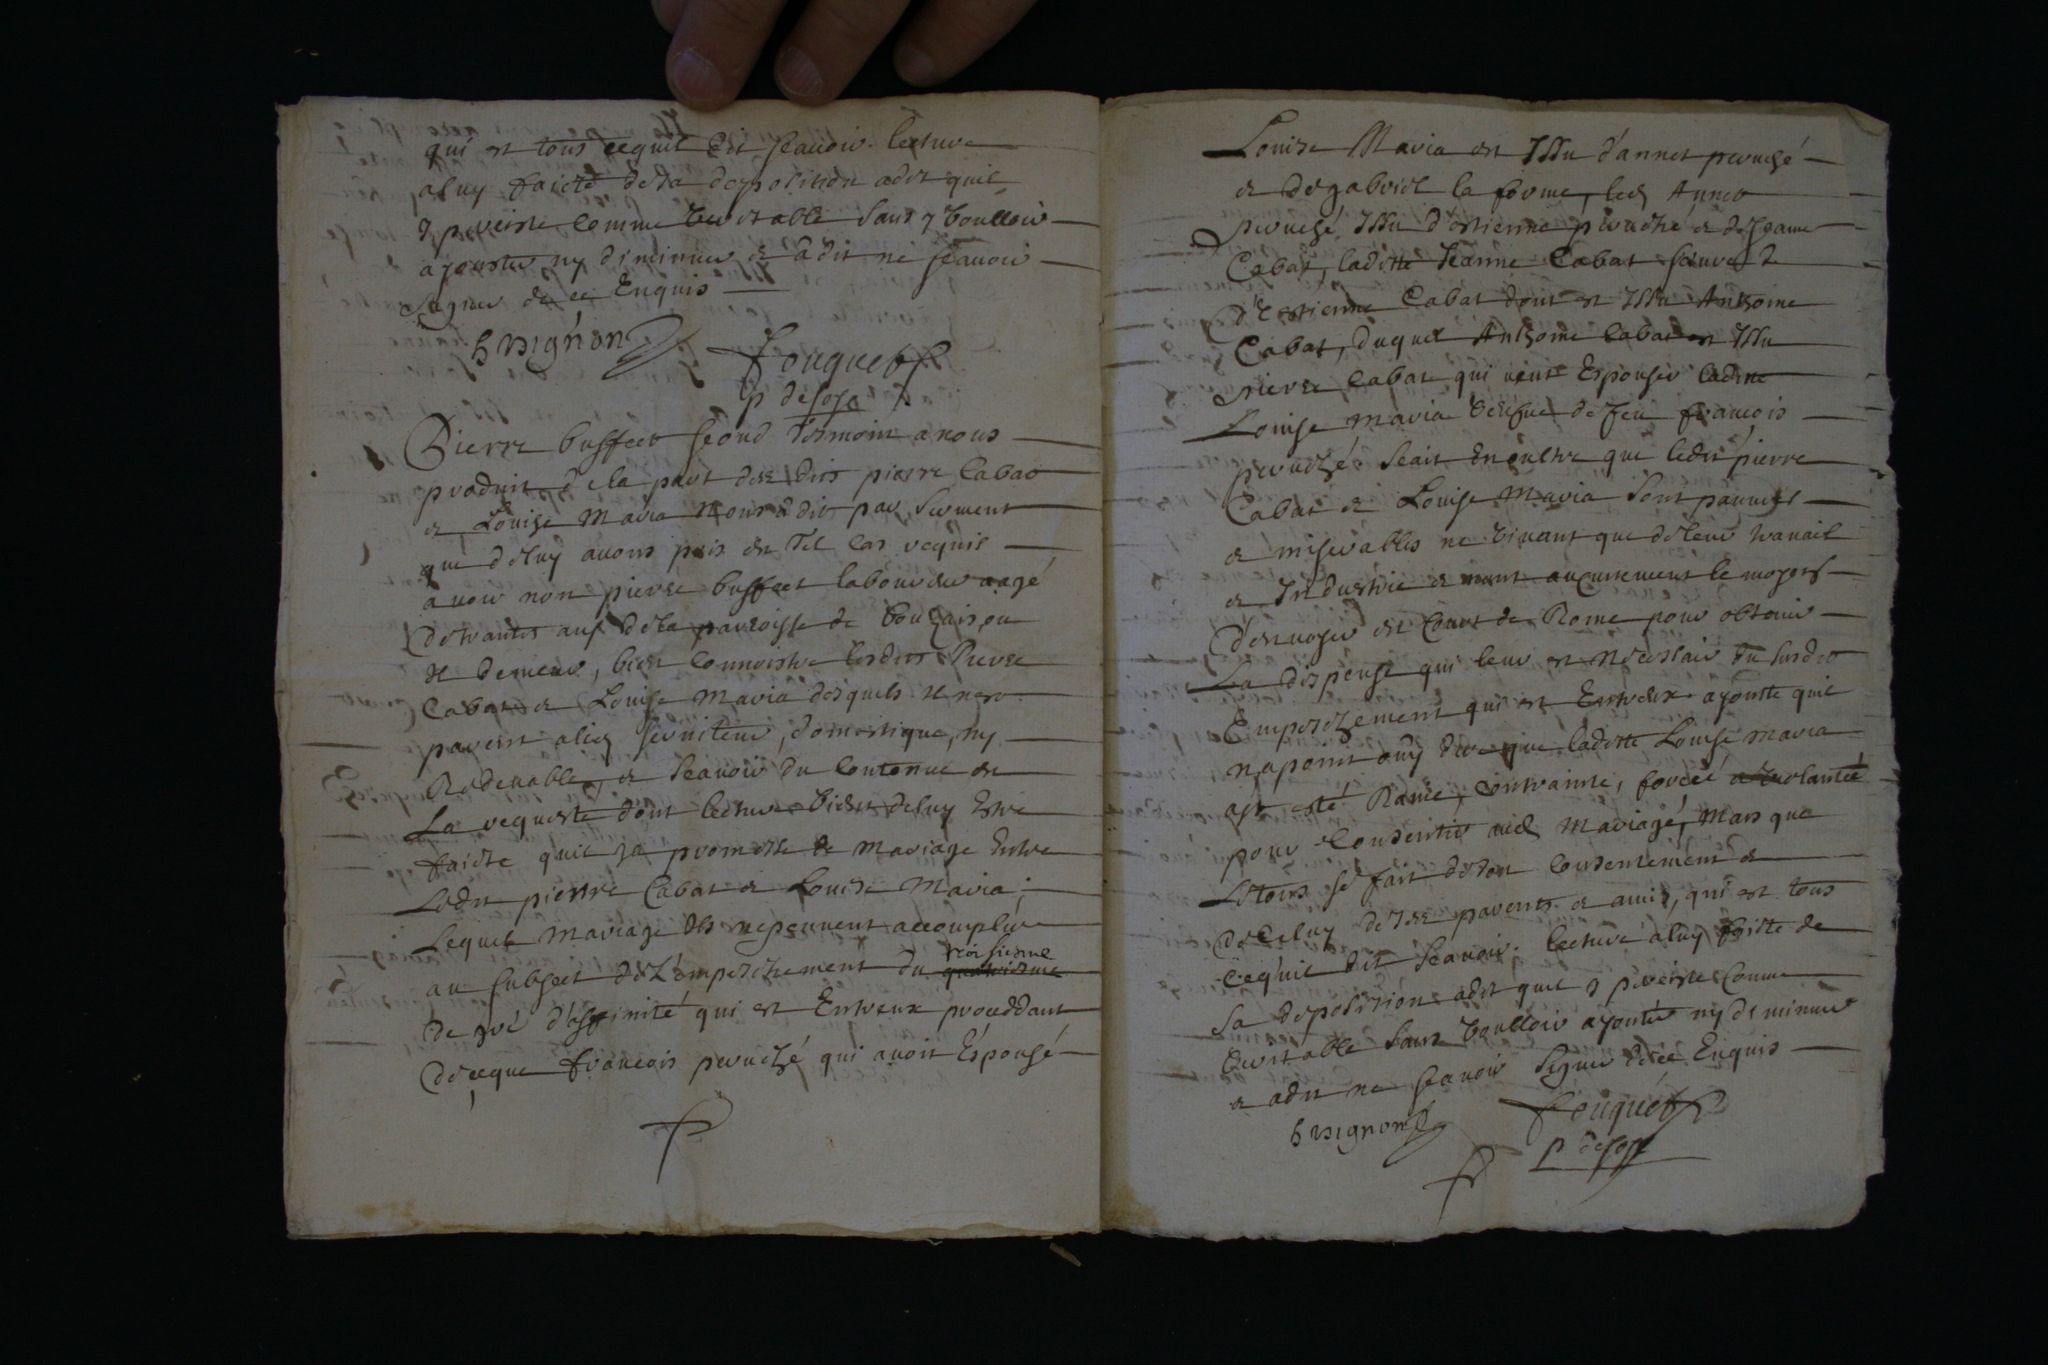 qui est tous cequil dit scauoir. lecture
aluy faicte de sa deposition adit quil
y perciste comme veritable sans y voulloir
ajouster ny diminuer & adit ne scauoir
signer de ce Enquis
h Mignon
Fouquet
p deloze
Pierre buffect second tesmoin a nous
produit de la part des dits pierre Cabat
& Louise Maria Nous a dit par serment
que deluy auons pris en tel cas requis
auoir nom pierre buffect laboureur aagé
de trantes ans de la parroisse de
il demeur, bien connoistre lesdits Pierre
Cabat & Louise Maria desquels il nest
parent aliez seruiteur, domestique, ny
Redeuable, & scauoir du contenue en
La requeste dont lecture vient deluy Estre
faicte quil ya promesse de mariage Entre
Ledit pierre Cabat & Louise Maria;
Lequel mariage Ils nepeuuent accomplir
troisiesme
au subject de L'empeschement du quatriesme
de gré d'affinité qui est Entreux proueddant
de ceque francois peruché qui auoit Espousé
Louise Maria est Issu d'annet peruché
& de gabriel la forme, led Annet
peruché Issu d'estienne peruché & de Jeanne
Cabat, laditte Jeanne Cabat soeur
d'Estienne Cabat dont est Issu Anthoine
Cabat, duquel Anthoine Cabat est Issu
pierre Cabat qui veut Espouser laditte
Louise Maria vesfue de feu francois
peruché. scait en oultre que ledit pierre
Cabat & Louise Maria sont pauures
& miserables ne viuant que de leur trauail
& Industrie & nont aucunement le moyens
d'enuoyer en Court de Rome pour obtenir
La dispense qui leur est necessair du susdit
Empeschement qui est Entreux ajoutte quil
napoint ouy dire que laditte Louise Maria
ayt esté Rauie, contrainte, forcéé
pour Consentir aud Mariagé, Mais que
Letous se fait deson consentement &
de Celuy de ses parents & amis, qui est tous
cequil dit scauoir. lecture aluy faitte de
sa deposition adit quil y perciste Comme
veritable sans voulloir ajouter ny diminuer
& adit ne scauoir signer dece Enquis
h Mignon
Fouquet
p deloze